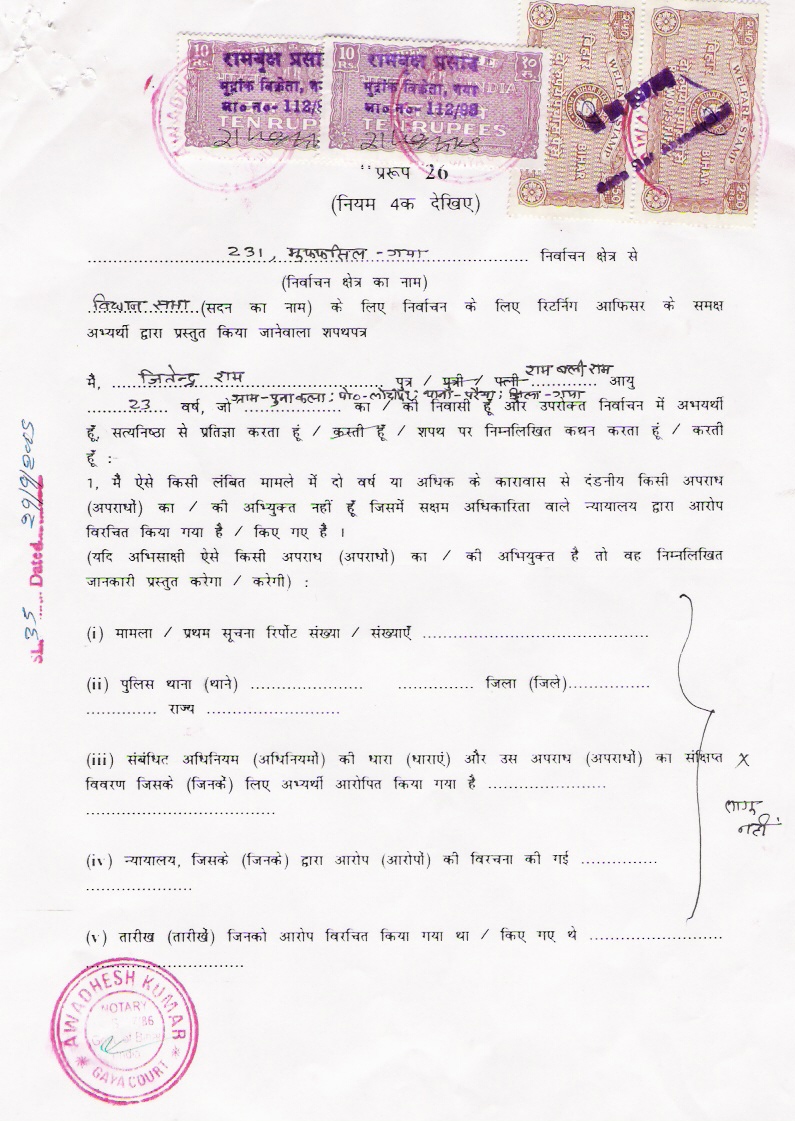 10 Rs.
रामबृक्ष प्रसा
मुद्रांक विक्रेता, गया
ला० न०- 112/9
TEN RUP
10 Rs.
१० रु.
रामबृक्ष प्रसाद
INDIA
मुद्रांक विक्रेता, गया
ला० न०- 112/98
TEN RUPEES
WELFARE STAMP
बिहार
BIHAR
2.50
WELFARE STAMP
बिहार
BIHAR
2.50
"प्ररूप 26
(नियम 4क देखिए)
231, मुफफसिल - गया निर्वाचन क्षेत्र से
(निर्वाचन क्षेत्र का नाम)
विधान सभा (सदन का नाम) के लिए निर्वाचन के लिए रिटर्निग आफिसर के समक्ष
अभ्यर्थी द्वारा प्रस्तुत किया जानेवाला शपथपत्र
मैं, जितेन्द्र राम पुत्र / पुत्री / पत्नी राम बली राम आयु
23 वर्ष, जो ग्राम-पुनाकला; पो०-; थाना-; जिला-गया का / की निवासी हूँ और उपरोक्त निर्वाचन में अभयर्थी
हूँ, सत्यनिष्ठा से प्रतिज्ञा करता हूं / करती हूँ / शपथ पर निम्नलिखित कथन करता हूं / करती
हूँ :
1, मैं ऐसे किसी लंबित मामले में दो वर्ष या अधिक के कारावास से दंडनीय किसी अपराध
(अपराधों) का / की अभियुक्त नहीं हूँ जिसमें सक्षम अधिकारिता वाले न्यायालय द्वारा आरोप
विरचित किया गया है / किए गए है ।
(यदि अभिसाक्षी ऐसे किसी अपराध (अपराधों) का / की अभियुक्त है तो वह निम्नलिखित
जानकारी प्रस्तुत करेगा / करेगी) :
(i) मामला / प्रथम सूचना रिर्पोट संख्या / संख्याएँ ........................................
(ii) पुलिस थाना (थाने) ..................... .............. जिला (जिले)...............
............. राज्य .........................
(iii) संबंधित अधिनियम (अधिनियमों) की धारा (धाराएं) और उस अपराध (अपराधों) का संक्षिप्त
विवरण जिसके (जिनके) लिए अभ्यर्थी आरोपित किया गया है ......................
...................................
X लागू
नहीं
(iv) न्यायालय, जिसके (जिनके) द्वारा आरोप (आरोपों) की विरचना की गई ..............
....................
(v) तारीख (तारीखें) जिनको आरोप विरचित किया गया था / किए गए थे .........................
..............................
SL. 35 Dated 29/9/2005
AWADHESH KUMAR
NOTARY
GAYA COURT